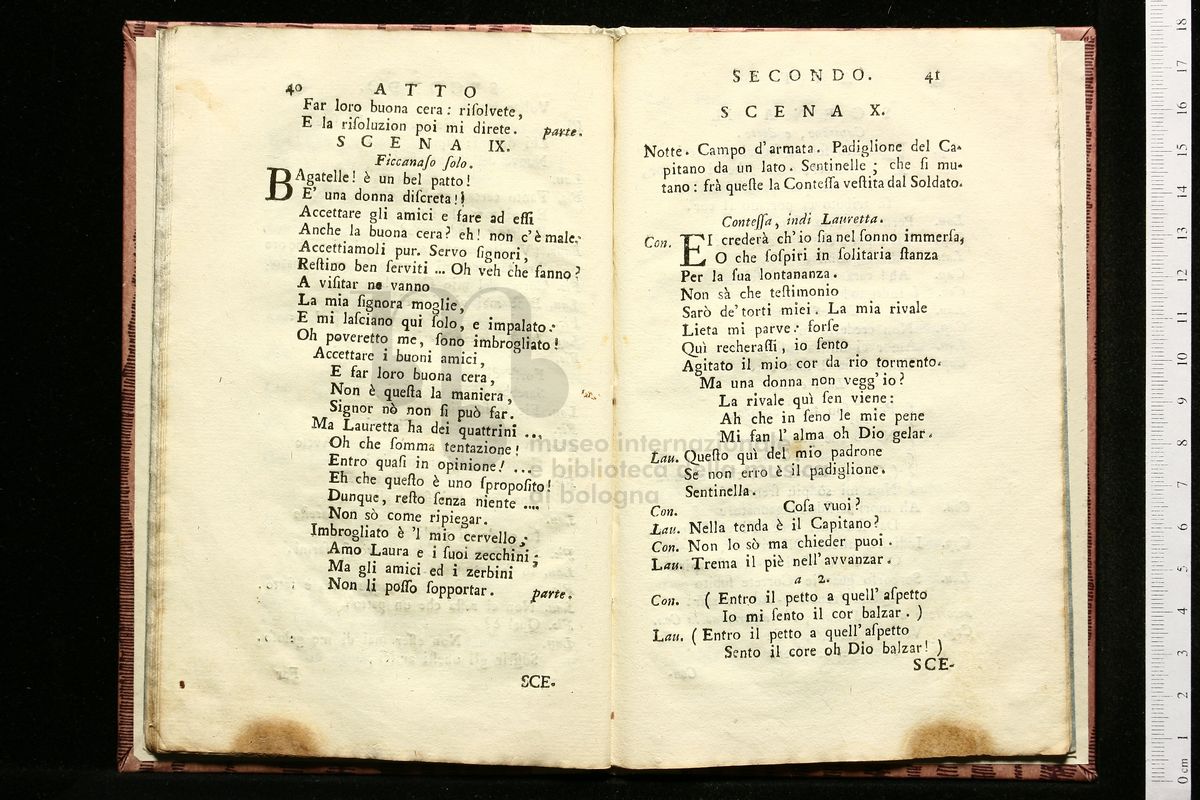 40 ATTO
Far loro buona cera: riſolvete,
E la riſoluzion poi mi direte. parte.
SCENA IX.
Ficcanaſo ſolo.
BAgatelle! è un bel patto!
E' una donna diſcreta!!
Accettare gli amici e fare ad eſſi
Anche la buona cera? eh! non c'è male.
Accettiamoli pur. Servo ſignori,
Reſtino ben ſerviti ... Oh veh che fanno?
A viſitar ne vanno
La mia ſignora moglie,
E mi laſciano qui ſolo, e impalato:
Oh poveretto me, ſono imbrogliato!
Accettare i buoni amici,
E far loro buona cera,
Non è queſta la maniera,
Signor nò non ſi può far.
Ma Lauretta ha dei quattrini ...
Oh che ſomma tentazione!
Entro quaſi in opinione! ...
Eh che queſto è uno ſpropoſito!
Dunque, reſto ſenza niente ....
Non sò come ripiegar.
Imbrogliato è 'l mio cervello;
Amo Laura e i ſuoi zecchini;
Ma gli amici ed i zerbini
Non li poſſo ſopportar. parte.
SCE-
SECONDO. 41
SCENA X.
Notte. Campo d'armata. Padiglione del Ca-
pitano da un lato. Sentinelle; che ſi mu-
tano: frà queſte la Conteſſa veſtita dal Soldato.
Conteſſa, indi Lauretta.
Con. EI crederà ch'io ſia nel ſonno immerſa,
O che ſoſpiri in ſolitaria ſtanza
Per la ſua lontananza.
Non sà che teſtimonio
Sarò de' torti miei. La mia rivale
Lieta mi parve: forſe
Quì recheraſſi, io ſento
Agitato il mio cor da rio tormento.
Ma una donna non vegg'io?
La rivale quì ſen viene:
Ah che in ſeno le mie pene
Mi fan l'alma oh Dio gelar.
Lau. Queſto quì del mio padrone
Se non erro è il padiglione.
Sentinella.
Con. Coſa vuoi?
Lau. Nella tenda è il Capitano?
Con. Non lo sò ma chieder puoi.
Lau. Trema il piè nell'avvanzar.
a 2.
Con. (Entro il petto a quell'aſpetto
Io mi ſento il cor balzar.)
Lau. (Entro il petto a quell'aſpetto
Sento il core oh Dio balzar!)
SCE-
museo internazionale
e biblioteca della musica
di bologna
0 cm 1 2 3 4 5 6 7 8 9 10 11 12 13 14 15 16 17 18